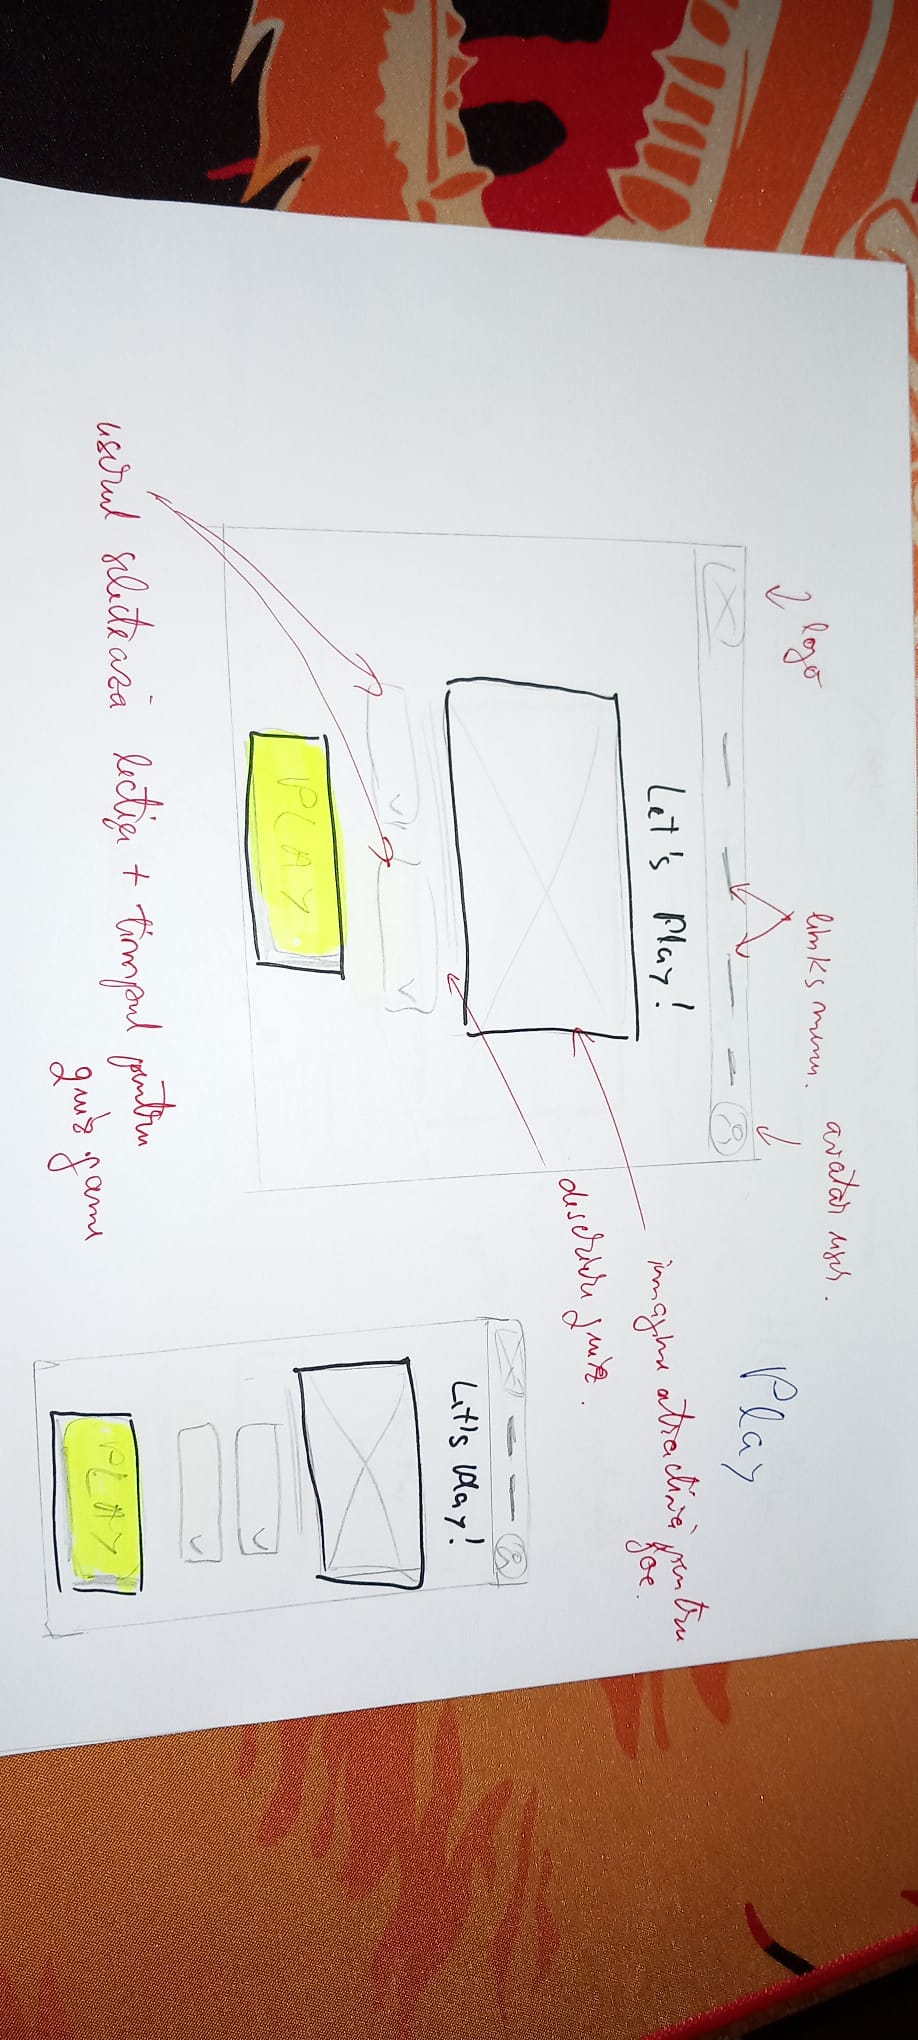 Play
logo
links menu.
avatar user.
Let's Play!
imagine atractivă pentru
joc.
descriere quiz.
PLAY
userul selectează lecția + timpul pentru
quiz game
Let's Play!
PLAY